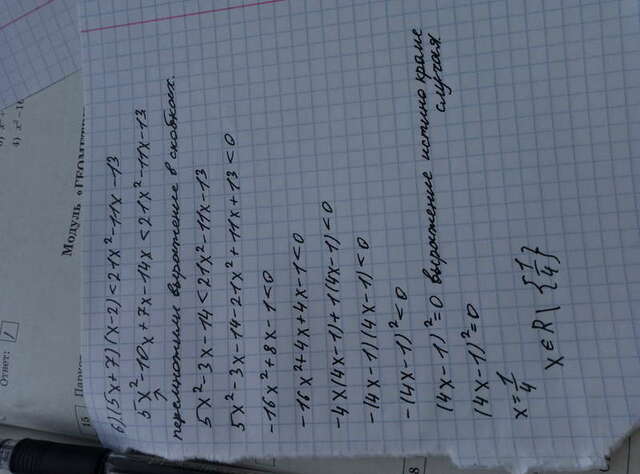 Ответ:
4) x²-16
Модуль «ГЕОМЕТР
15
6).(5x+7)(x-2)<21x²-11x-13
5x²-10x+7x-14x<21x²-11x-13
перемножили выражение в скобках.
5x²-3x-14<21x²-11x-13
5x²-3x-14-21x²+11x+13<0
-16x²+8x-1<0
-16x²+4x+4x-1<0
-4x(4x-1)+1(4x-1)<0
-(4x-1)(4x-1)<0
-(4x-1)²<0
(4x-1)²=0 выражение истино кроме
случая
(4x-1)²=0
x=1/4
x∈R\{1/4}
8